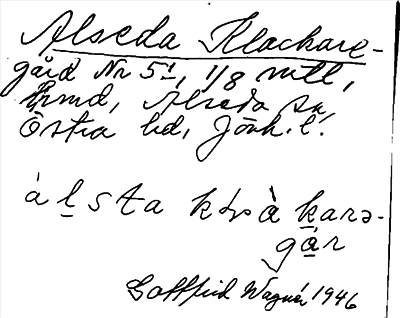 Alseda Klockare-
gård Nr 5¹, 1/8 mtl,
frmd, Alseda sn
Östra hd, Jönk. l.
álsta klɔ̀karə-
gár
Gottfrid Wagnér 1946